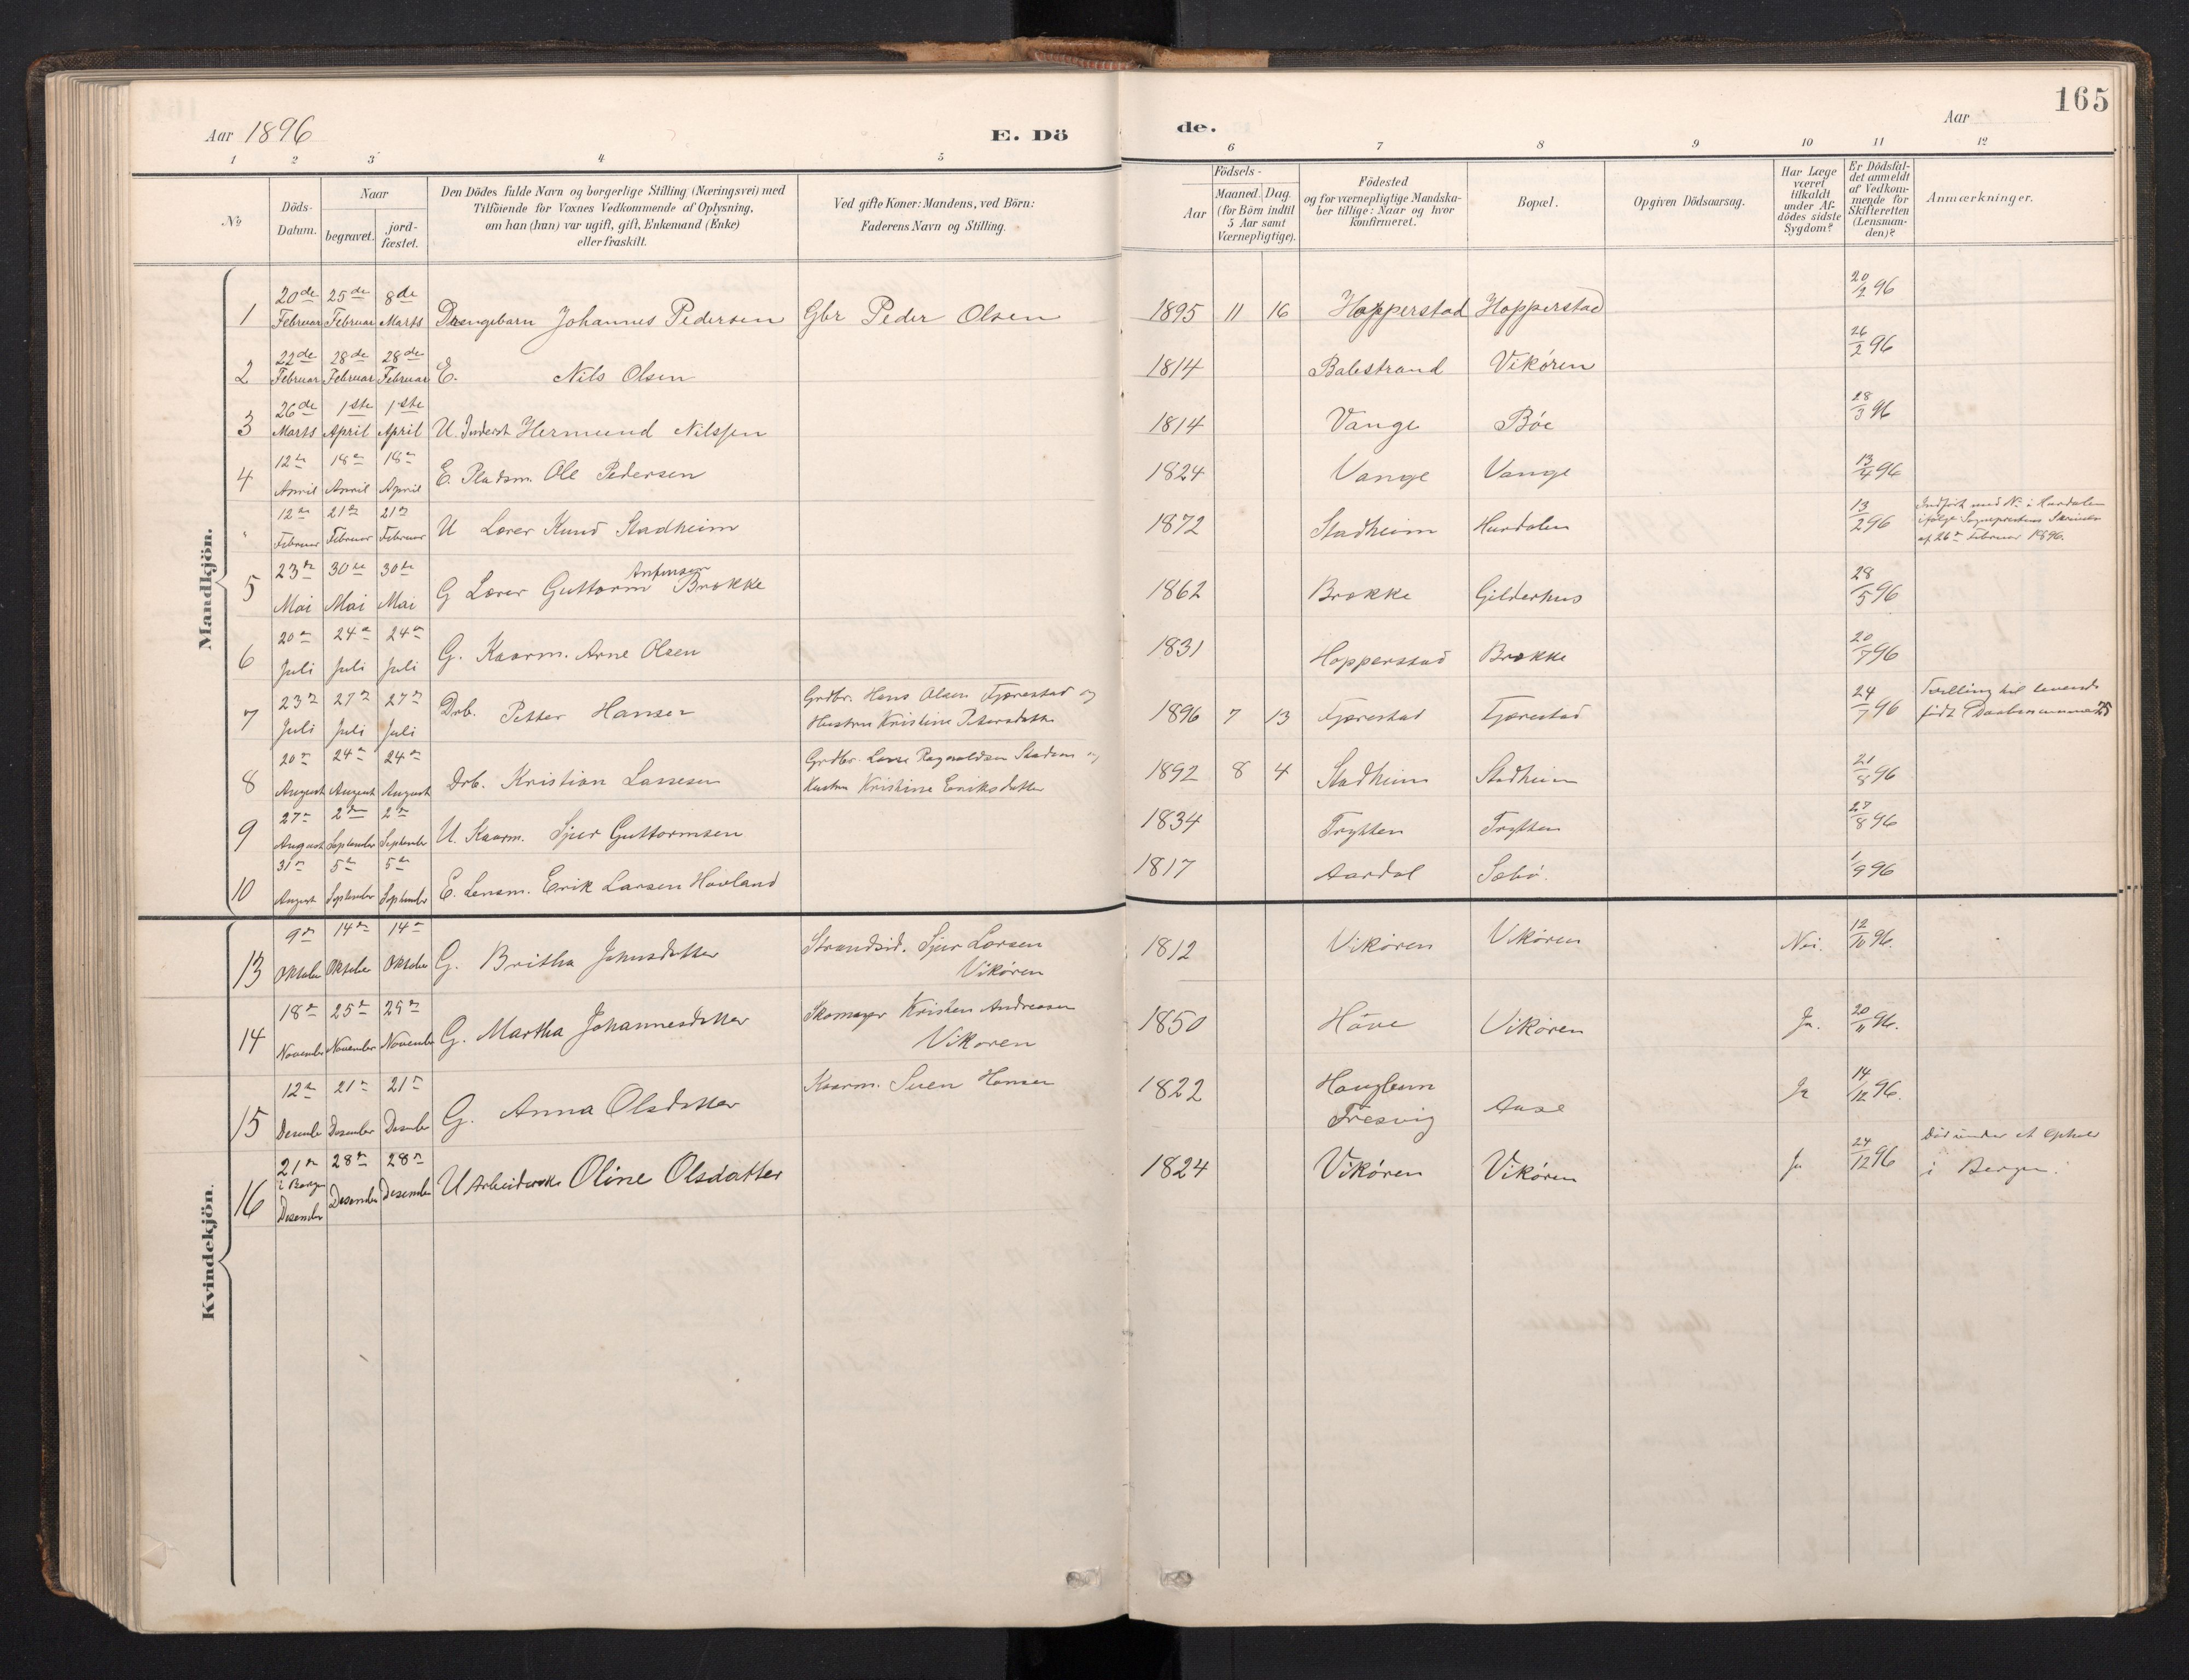 165
Aar 1896 E. Dö de. Aar
1 2 3 4 5 6 7 8 9 10 11 12
No
Döds-Datum.
Naar
begravet.
jord-fæstet.
Den Dödes fulde Navn og borgerlige Stilling (Næringsvei) med
Tilföiende for Voxnes Vedkommende af Oplysning,
om han (hun) var ugift, gift, Enkemand (Enke)
eller fraskilt.
Ved gifte Koner: Mandens, ved Börn:
Faderens Navn og Stilling.
Födsels-
Aar
Maaned. Dag.
(for Börn indtil
5 Aar samt
Værnepligtige).
Födested
og for værnepligtige Mandska-
ber tillige: Naar og hvor
konfirmeret.
Bopæl.
Opgiven Dödsaarsag.
Har Læge
været
tilkaldt
under Af-
dödes sidste
Sygdom?
Er Dödsfal-
det anmeldt
af Vedkom-
mende for
Skifteretten
(Lensman-
den)?
Anmærkninger.
Mandkjön.
1 20de Februar 25de Februar 8de Marts Drengebarn Johannes Pedersen Gbr Peder Olsen 1895 11 16 Hopperstad Hopperstad 20/2 96
2 22de Februar 28de Februar 28de Februar E. Nils Olsen 1814 Balestrand Vikören 26/2 96
3 26de Marts 1ste April 1ste April U. Inderst Hermund Nilssen 1814 Vange Böe 28/3 96
4 12te April 18de April 18de April E. Pladsm. Ole Pedersen 1824 Vange Vange 13/4 96
" 12te Februar 21de Februar 21de Februar U Lærer Knud Stadheim 1872 Stadheim Hurdalen 13/2 96 Indfört med No i Hurdalen
ifölge Sogneprestens Skrivelse
af 26de Februar 1896.
5 23de Mai 30te Mai 30te Mai G Lærer Guttorm Anfinsen Brække 1862 Brække Gilderhus 28/5 96
6 20de Juli 24de Juli 24de Juli G. Kaarm. Arne Olsen 1831 Hopperstad Brække 20/7 96
7 23de Juli 27de Juli 27de Juli Drb. Petter Hansen Grdbr. Hans Olsen Tjærestad og
Hustru Kristine Petersdatter 1896 7 13 Tjærestad Tjærestad 24/7 96 Tvilling til levende
födt Daabsnummer 25
8 20de August 24de August 24de August Drb. Kristian Lassesen Grdbr. Lasse Ragnvaldsen Stadem og
Hustru Kristine Eriksdatter 1892 8 4 Stadheim Stadheim 21/8 96
9 27de August 2den September 2den September U. Kaarm. Sjur Guttormsen 1834 Trytten Trytten 27/8 96
10 31te August 5te September 5te September E. Lensm. Erik Larsen Hovland 1817 Aardal Sæbö. 1/9 96
Kvindekjön.
13 9de Oktober 14de Oktober 14de Oktober G. Britha Johnsdatter Strandsid. Sjur Larsen
Vikören 1812 Vikören Vikören Nei. 12/10 96.
14 18de November 25de November 25de November G. Martha Johannesdatter Skomager Kristen Andreasen
Vikören 1850 Höve Vikören Ja. 20/11 96.
15 12te Desember 21de Desember 21de Desember G. Anna Olsdatter Kaarm. Sven Hansen 1822 Hauglum
Fresvig Aase Ja 14/12 96.
16 21de i Bergen Desember 28de Desember 28de Desember U Arbeiderske Oline Olsdatter 1824 Vikören Vikören Ja 24/12 96 Död under et Ophold
i Bergen.